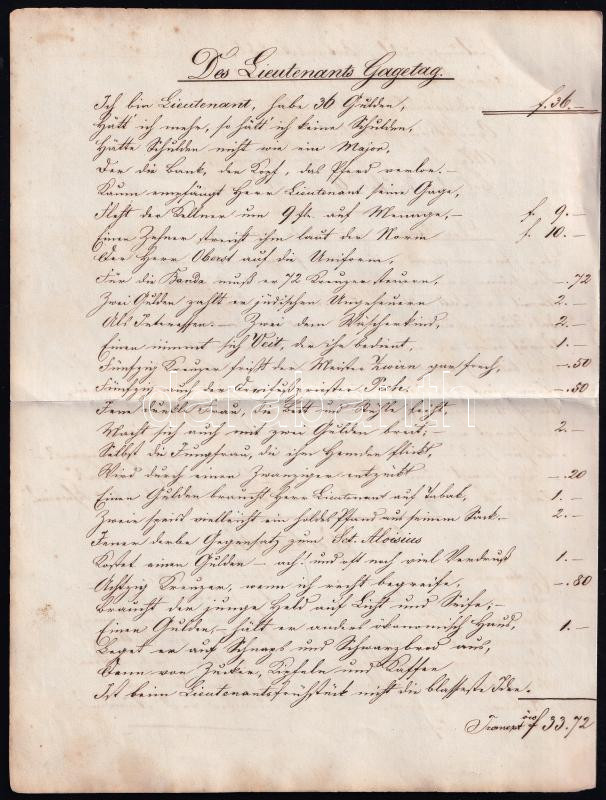 Des Lieutenants Gagetag.
Ich bin Lieutenant, habe 36 Gulden, f. 36.—
Hätt' ich mehr, so hätt' ich keine Schulden,
Hätte Schulden nicht wie ein Major,
Der die Bank, den Kopf, das Pferd verlor.—
Kaum empfängt Herr Lieutenant seine Gage,
der Kellner um 9 fl. auf Menage,— f. 9.—
Einen Zehner streicht ihm laut der Norm f. 10.—
Der Herr Oberst auf die Uniform,
Für die Banda muß er 72 Kreuzer steuern, —.72
Zwei Gulden zahlt er jüdischen Ungeheuern 2.—
Als Interessen.— Zwei dem Wäscherkind, 2.—
Einen nimmt sich Veit, der ihn bedient, 1.—
Fünfzig Kreuzer frißt der Meister Zwirn gar frech, —.50
Fünfzig auch der —.50
Jene Frau, die Bett und
Macht sich auch mit zwei Gulden breit;— 2.—
Selbst die Jungfrau, die ihm Hemden flickt,
Wird durch einen Zwanziger entzückt —.20
Einen Gulden braucht Herr Lieutenant auf Tabak, 1.—
Zweie speist vielleicht ein holdes Pfand aus seinem Sack.— 2.—
Jener derbe Gegensatz zum Sct. Aloisius
Kostet einen Gulden — ach! und oft noch viel Verdruß 1.—
Achtzig Kreuzer, wenn ich recht begreife, —.80
Braucht der junge Held auf Licht und Seife,—
Einen Gulden,— hält er anders ökonomisch Haus, 1.—
Leget er auf Schnaps und Schwarzbrod aus,
Denn von Zucker, Kipfeln und Kaffee
Ist beim Lieutenantsfrühstück nicht die blasseste Idee.
f 33.72
darabanth